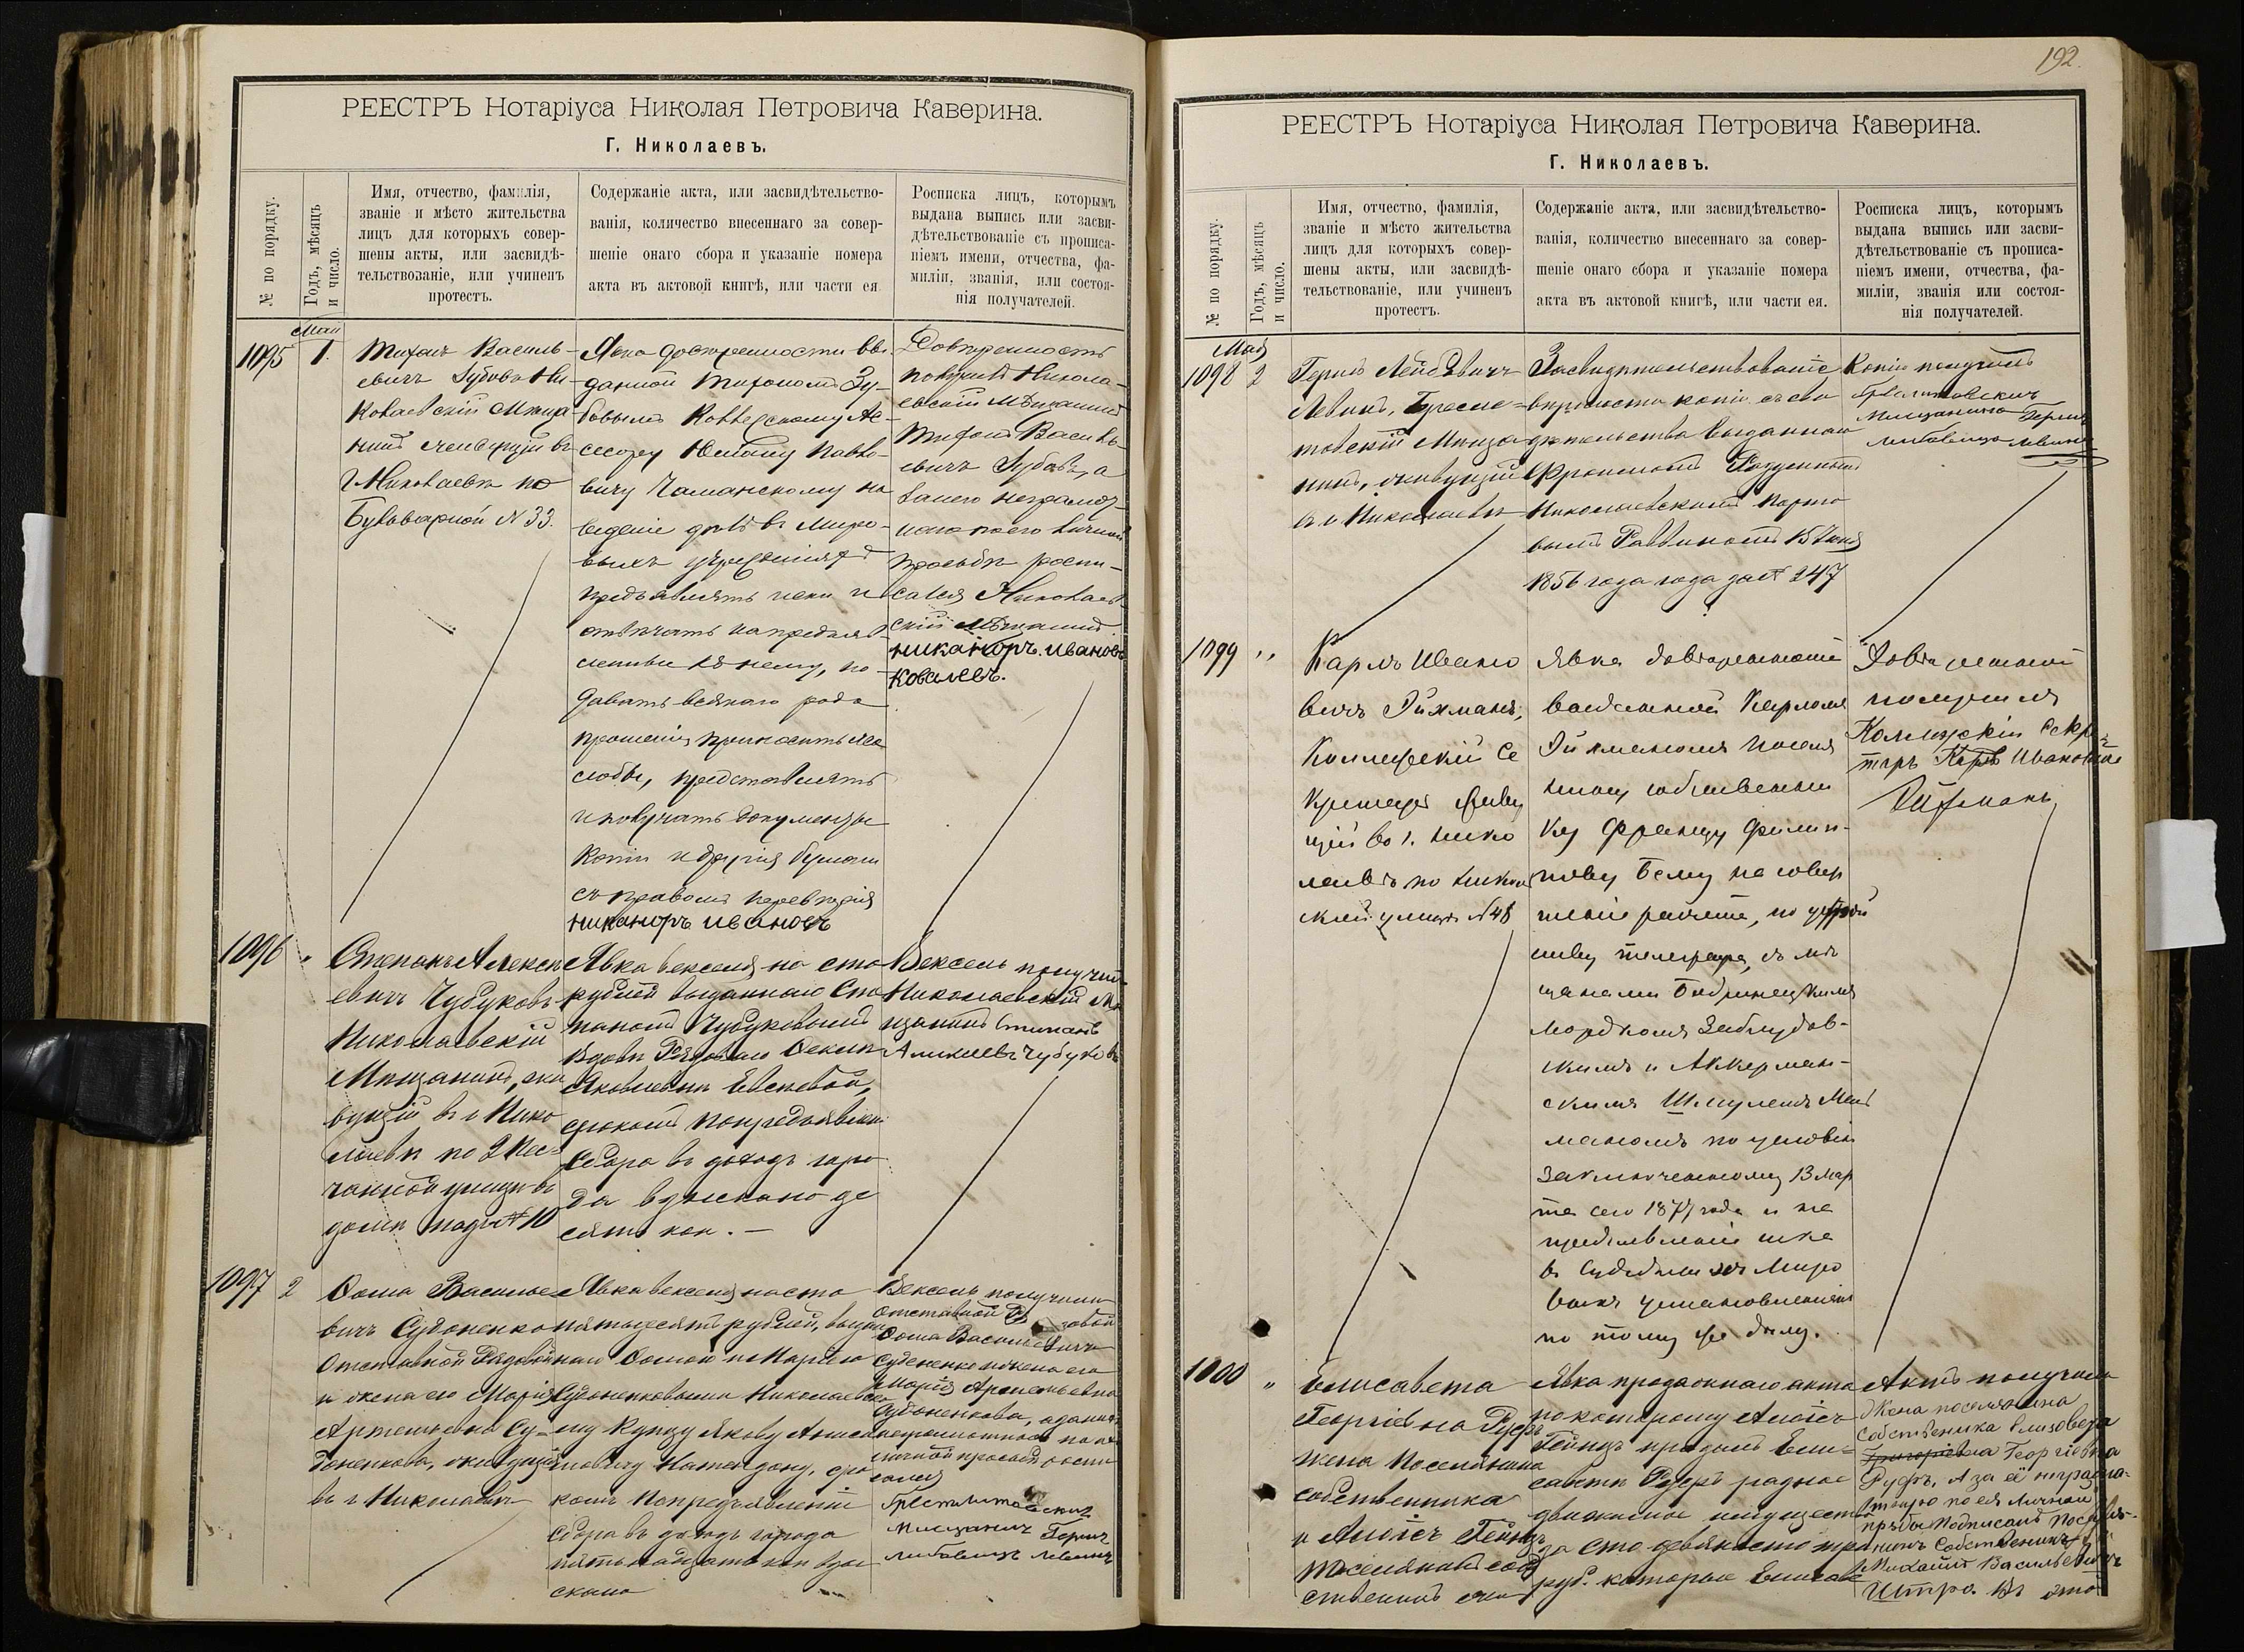 РЕЕСТРЪ Нотаріуса Николая Петровича Каверина.
Г. Николаевъ.
№ по порядку.
Годъ, мѣсяцъ
и число.
Имя, отчество, фамилія,
званіе и мѣсто жительства
лицъ для которыхъ совер-
шены акты, или засвидѣ-
тельствованіе, или учиненъ
протестъ.
Содержаніе акта, или засвидѣтельство-
ванія, количество внесеннаго за совер-
шеніе онаго сбора и указаніе номера
акта въ актовой книгѣ, или части ея.
Росписка лицъ, которымъ
выдана выпись или засви-
дѣтельствованіе съ прописа-
ніемъ имени, отчества, фа-
миліи, званія, или состоя-
нія получателей.
Май
1095
1.
Тифонъ Василь-
евичъ Зубовъ Ни-
колаевскій Мѣща-
нинъ живущій въ
г. Николаевѣ по
Бульварной № 33.
Явка довѣренности вы-
данной Тифономъ Зу-
бовымъ Коллежскому Ас-
сесору Юліану Павло-
вичу Чаманскому на
веденіе дѣлъ въ Миро-
выхъ учрежденіяхъ
предъявлять иски и
отвѣчать по предъяв-
леннымъ къ нему, по-
давать всякаго рода
прошенія приносить жа-
лобы, представлять
и получать документы
копіи и другія бумаги
съ правомъ перевѣрія
никаноръ ивановъ
Довѣренность
получилъ Никола-
евскій Мѣщанинъ
Тифонъ Василь-
евичъ Зубовъ, а
за него неграмот-
наго по его личной
просьбѣ роспи-
сался Николаев-
скій Мѣщанинъ
никаноръ. ивановъ
Ковалевъ.
1096
"
Степанъ Алексѣ
евичъ Чубуковъ
Николаевскій
Мѣщанинъ, жи
вущій въ г. Нико
лаевѣ по 2 Пес-
чанной улицѣ въ
домѣ подъ № 10
Явка векселя на сто
рублей выданнаго Сте
паномъ Чубуковымъ
Вдовѣ Рядоваго
Яковлевнѣ
срокомъ по предъявленіи
Сбора въ доходъ горо
да взыскано де
сять коп. —
Вексель получилъ
Николаевскій Мѣ
щанинъ Стипанъ
Аликсѣевъ Чубуковъ
1097
2
Ѳома Василье
вичъ Судоненко
Отставной Рядовой
и жена его Марія
Артемьевна Су-
доненкова, живущіе
въ г. Николаевѣ
Явка векселя на сто
пятьдесятъ рублей, выдан
наго Ѳомою и Маріею
Судоненковыми Николаевско
му Купцу Якову
Натансону, сро
комъ по предъявленіи
Сбора въ доходъ города
пятьнадцать коп взы
скано
Вексель получили
Отставной Рядовой
Ѳома Васильевичъ
Судоненко и жена его
Марія Артемьевна
Судоненкова, а за нихъ
неграмотныхъ по их
личной просьбѣ роспи
сался
Брестлитовскій
Мѣщанинъ Гершъ
Лейбовичъ Левинъ
192.
РЕЕСТРЪ Нотаріуса Николая Петровича Каверина.
Г. Николаевъ.
№ по порядку.
Годъ, мѣсяцъ
и число.
Имя, отчество, фамилія,
званіе и мѣсто жительства
лицъ для которыхъ совер-
шены акты, или засвидѣ-
тельствованіе, или учиненъ
протестъ.
Содержаніе акта, или засвидѣтельство-
ванія, количество внесеннаго за совер-
шеніе онаго сбора и указаніе номера
акта въ актовой книгѣ, или части ея.
Росписка лицъ, которымъ
выдана выпись или засви-
дѣтельствованіе съ прописа-
ніемъ имени, отчества, фа-
миліи, званія или состоя-
нія получателей.
Май
1098
2
Гершъ Лейбовичъ
Левинъ, Брестли-
товскій Мѣща-
нинъ, живущій
въ г. Николаевѣ
Засвидѣтельствованіе
вѣрности копіи съ сви
дѣтельства выданнаго
Николаевскимъ Порто
вымъ Раввиномъ 15 Іюня
1856 года года за № 247
Копію получилъ
Брестлитовскій
Мѣщанинъ Гершъ
Лейбовичъ Левинъ
1099
"
Карлъ Ивано
вичъ Эйхманъ,
Коллежскій Се
кретарь живу
щій въ г. Нико
лаевѣ по Николь
ской улицѣ № 48
Явка довѣренности
выданной Карломъ
Эйхманомъ Поселя
нину собственни
ку Францу Филип-
пову Бему на совер
шеніе разчета, по устрой
ству телеграфа, съ мѣ
щанами Бобринецкимъ
Мордкомъ Заблудов-
скимъ и Аккерман-
скимъ Шмулемъ
маномъ по условію
Заключенному 13 Мар
та сего 1877 года и на
предъявленіе иска
въ Судебныхъ Миро
выхъ установленіяхъ
по тому же дѣлу.
Довѣренность
получилъ
Коллежскій Секре-
тарь Карлъ Ивановичъ
Эйхманъ
1100
"
Елисавета
Георгіевна Руфъ
жена Поселянина
собственника
и Алоисъ Гейнцъ
Поселянинъ соб
ственникъ жи
Явка продажнаго акта
по которому Алоисъ
Гейнцъ продалъ Ели-
саветѣ Руфъ разное
движимое имущество
за сто девяносто три
руб. которые Елисав
Актъ получила
Жена поселянина
собственика Елизовета
Григоріевна Георгіевна
Руфъ, А за её неграмо-
тную по ея личной
прозьбы Подписалъ Поселя-
нинъ Собственникъ
Михаилъ Васильевичъ
Штро. Въ этомъ